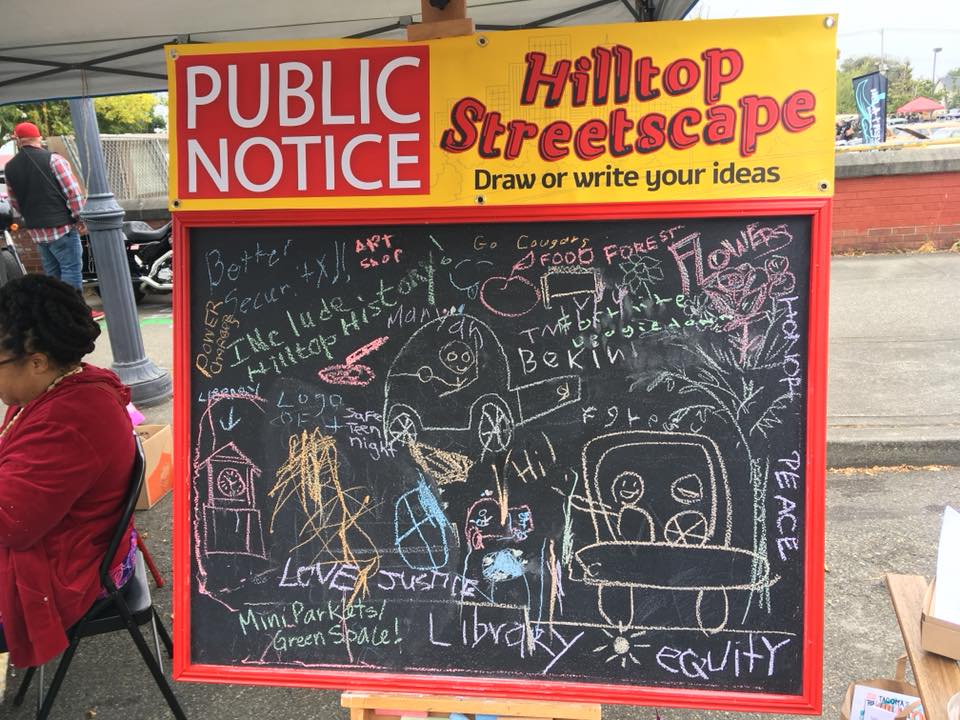 PUBLIC
NOTICE
Hilltop
Streetscape
Draw or write your ideas
Better
Security!!
ART
Shop
Go Cougars
FOOD FOREST
FLOWERS
POWER
INclude
Hilltop
History
Mariah
Bekin
Library
Logo
Safe
Teen
night
Hi!
HONOR
PEACE
LOVE JUSTICE
Mini Parkets/
GreenSpace!
Library
eQUITY
TACOMA